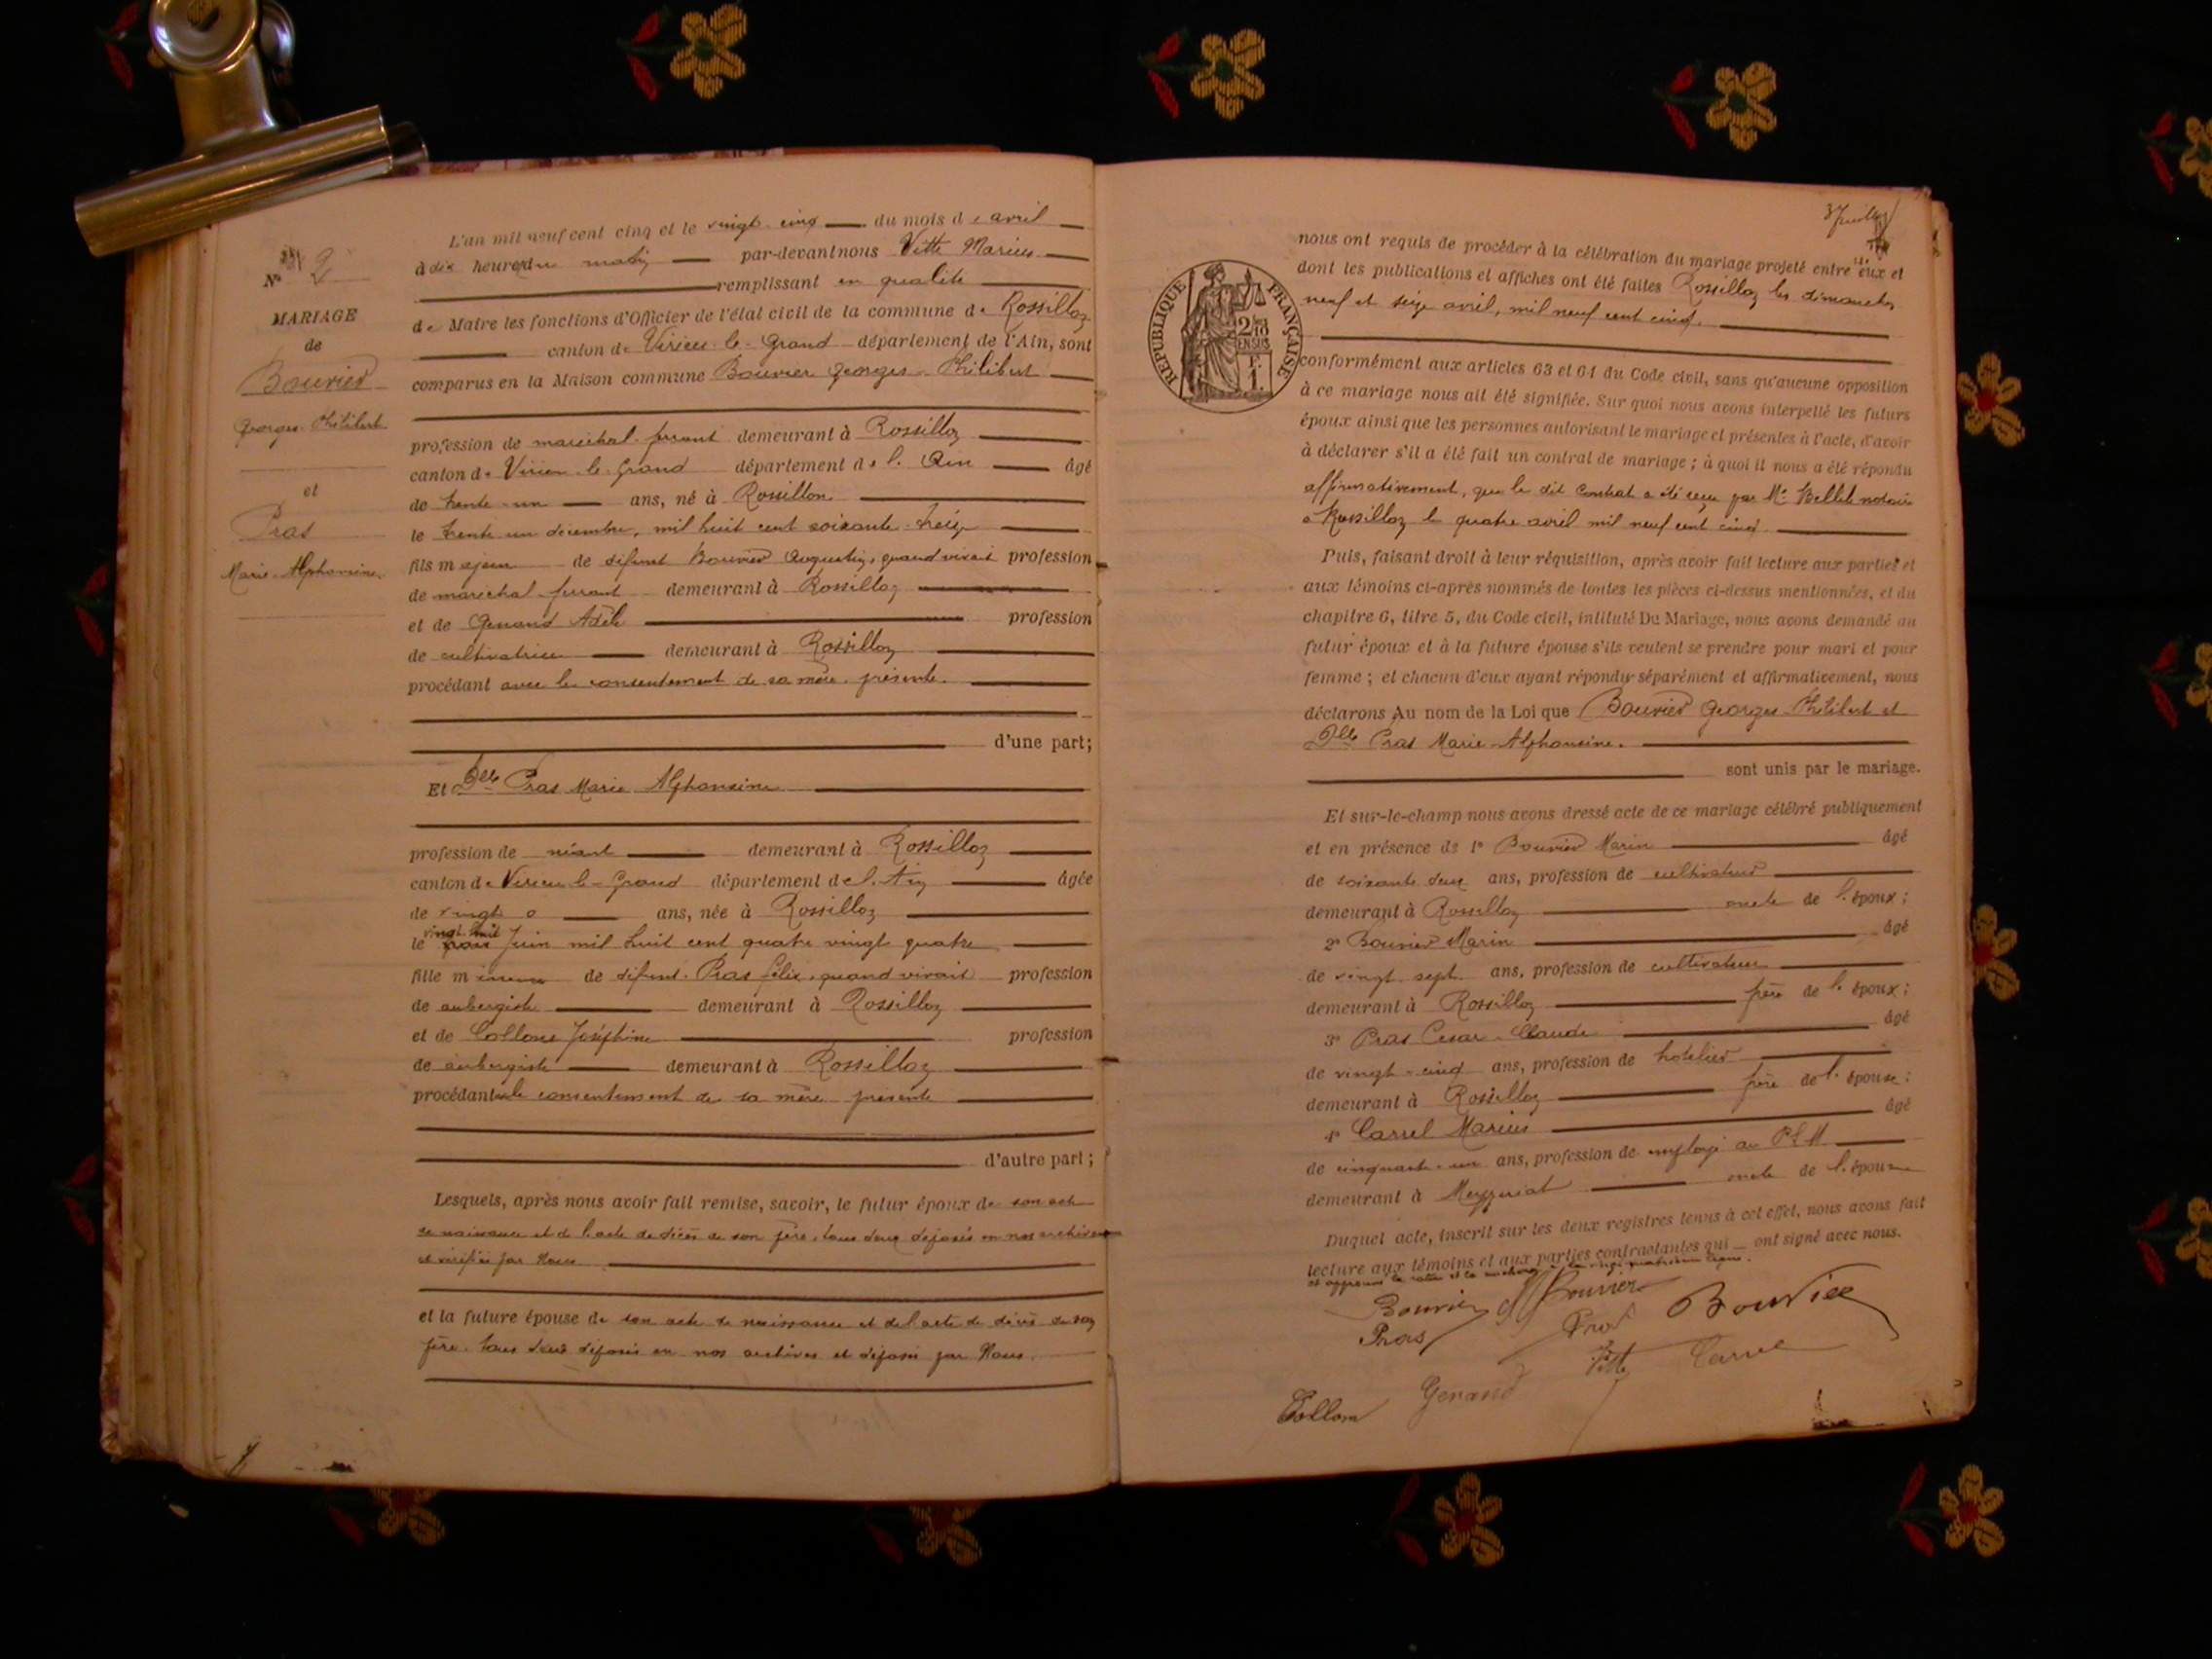 N° 2
MARIAGE
de
Bouvier
Georges Philibert
et
Pras
Marie-Alphonsine
L'an mil neuf cent cinq et le vingt cinq du mois d'avril
à dix heures du matin par-devant nous Vitte Marius
remplissant en qualité
de Maire les fonctions d'Officier de l'état civil de la commune de Rossillon
canton de Virieu-le-Grand département de l'Ain, sont
comparus en la Maison commune Bouvier Georges Philibert
profession de maréchal-ferrant demeurant à Rossillon
canton de Virieu-le-Grand département de l'Ain âgé
de trente-un ans, né à Rossillon
le trente un décembre, mil huit cent soixante-treize
fils majeur de défunt Bouvier Augustin, quand vivait profession
de maréchal-ferrant demeurant à Rossillon
et de Genand Adèle profession
de cultivatrice demeurant à Rossillon
procédant avec le consentement de sa mère présente.
d'une part;
Et Dlle Pras Marie Alphonsine
profession de néant demeurant à Rossillon
canton de Virieu-le-Grand département de l'Ain âgée
de vingt ans, née à Rossillon
vingt huit
le Juin mil huit cent quatre vingt quatre
fille mineure de défunt Pras Félix, quand vivait profession
de aubergiste demeurant à Rossillon
et de Collomb Joséphine profession
de aubergiste demeurant à Rossillon
procédant avec le consentement de sa mère présente
d'autre part;
Lesquels, après nous avoir fait remise, savoir, le futur époux de son acte
de naissance et de l'acte de décès de son père, tous deux déposés en nos archives
et vérifiés par Nous
et la future épouse de son acte de naissance et de l'acte de décès de son
père, tous deux déposés en nos archives et déposés par Nous.
RÉPUBLIQUE FRANÇAISE
2/10
EN SUS
F.
1.
nous ont requis de procéder à la célébration du mariage projeté entre eux et
dont les publications et affiches ont été faites Rossillon les dimanches
neuf et seize avril, mil neuf cent cinq.
conformément aux articles 63 et 64 du Code civil, sans qu'aucune opposition
à ce mariage nous ait été signifiée. Sur quoi nous avons interpellé les futurs
époux ainsi que les personnes autorisant le mariage et présentes à l'acte, d'avoir
à déclarer s'il a été fait un contrat de mariage; à quoi il nous a été répondu
affirmativement, que le dit contrat a été reçu par Me Bellet notaire
à Rossillon le quatre avril mil neuf cent cinq
Puis, faisant droit à leur réquisition, après avoir fait lecture aux parties et
aux témoins ci-après nommés de toutes les pièces ci-dessus mentionnées, et du
chapitre 6, titre 5, du Code civil, intitulé Du Mariage, nous avons demandé au
futur époux et à la future épouse s'ils veulent se prendre pour mari et pour
femme; et chacun d'eux ayant répondu séparément et affirmativement, nous
déclarons Au nom de la Loi que Bouvier Georges Philibert et
Dlle Pras Marie-Alphonsine.
sont unis par le mariage.
Et sur-le-champ nous avons dressé acte de ce mariage célébré publiquement
et en présence de 1° Bouvier Marin âgé
de soixante deux ans, profession de cultivateur
demeurant à Rossillon oncle de l'époux;
2° Bouvier Marin âgé
de vingt sept ans, profession de cultivateur
demeurant à Rossillon frère de l'époux;
3° Pras César-Claude âgé
de vingt-cinq ans, profession de hotelier
demeurant à Rossillon frère de l'épouse;
4° Carrel Marius âgé
de cinquante-un ans, profession de employé au PLM
demeurant à Meyzeriat oncle de l'épouse
Duquel acte, inscrit sur les deux registres tenus à cet effet, nous avons fait
lecture aux témoins et aux parties contractantes qui ont signé avec nous.
Bouvier M Bouvier Bouvier
Pras Pras
Vitte Carrel
Collomb Genand